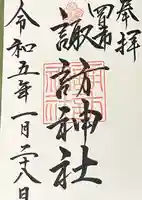 奉拝
諏訪神社
令和五年一月二十八日